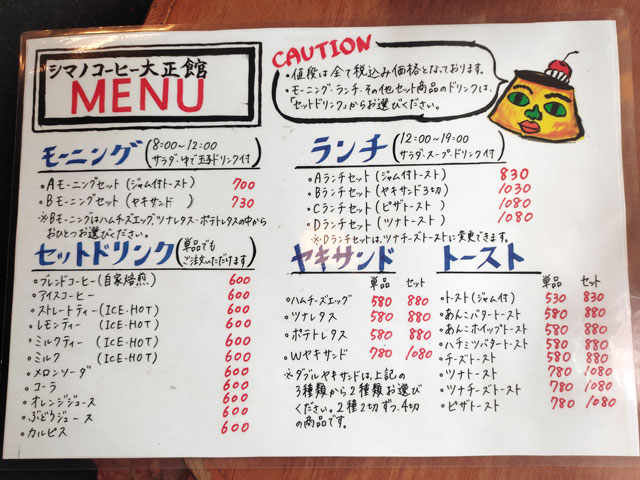 シマノコーヒー大正館
MENU
CAUTION
・値段は全て税込み価格となっております。
・モーニング・ランチ・その他セット商品のドリンクは、
「セットドリンク」からお選びください。
モーニング
8:00~12:00
サラダ・ゆで玉子・ドリンク付
・Aモーニングセット(ジャム付トースト) 700
・Bモーニングセット(ヤキサンド) 730
※Bモーニングはハムチーズエッグ、ツナレタス・ポテトレタスの中から
おひとつお選びください。
ランチ
12:00~19:00
サラダ・スープ・ドリンク付
・Aランチセット(ジャム付トースト) 830
・Bランチセット(ヤキサンド3切) 1030
・Cランチセット(ピザトースト) 1080
・Dランチセット(ツナトースト) 1080
※Dランチセットは、ツナチーズトーストに変更できます。
セットドリンク
単品でも
ご注文いただけます
・ブレンドコーヒー(自家焙煎) 600
・アイスコーヒー 600
・ストレートティー(ICE・HOT) 600
・レモンティー (ICE・HOT) 600
・ミルクティー (ICE・HOT) 600
・ミルク (ICE・HOT) 600
・メロンソーダ 600
・コーラ 600
・オレンジジュース 600
・ぶどうジュース 600
・カルピス 600
ヤキサンド
単品 セット
・ハムチーズエッグ 580 880
・ツナレタス 580 880
・ポテトレタス 580 880
・Wヤキサンド 780 1080
※ダブルヤキサンドは、上記の
3種類から2種類お選び
ください。2種2切ずつ、4切
の商品です。
トースト
単品 セット
・トースト(ジャム付) 530 830
・あんこバタートースト 580 880
・あんこホイップトースト 580 880
・ハチミツバタートースト 580 880
・チーズトースト 580 880
・ツナトースト 780 1080
・ツナチーズトースト 780 1080
・ピザトースト 780 1080